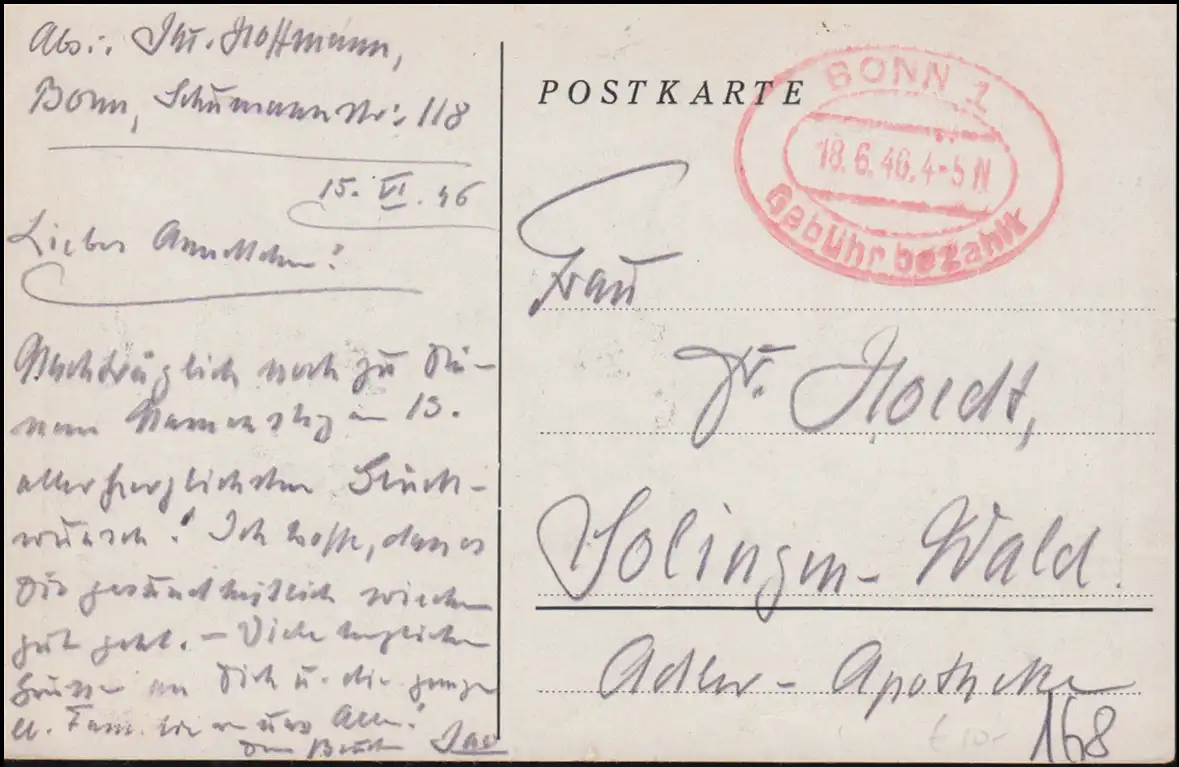 Abs.: Hoffmann,
Bonn, Schumannstr. 118
15. VI. 46
Liebes Annchen!
Nachträglich noch zu Dei-
nem Namenstag am 13.
allerherzlichsten Glück-
wunsch! Ich hoffe, dass es
Dir gesundheitlich wieder
gut geht. – Viele herzliche
Grüsse an Dich u. die ganze
Familie von uns Allen!
Dein Bruder
POSTKARTE
BONN 1
18.6.46.4-5 N
Gebühr bezahlt
Frau
Dr. Hoedt,
Solingen-Wald.
Adler-Apotheke
168